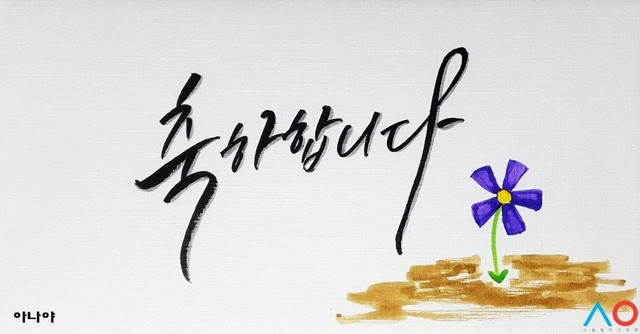 축하합니다
아나야